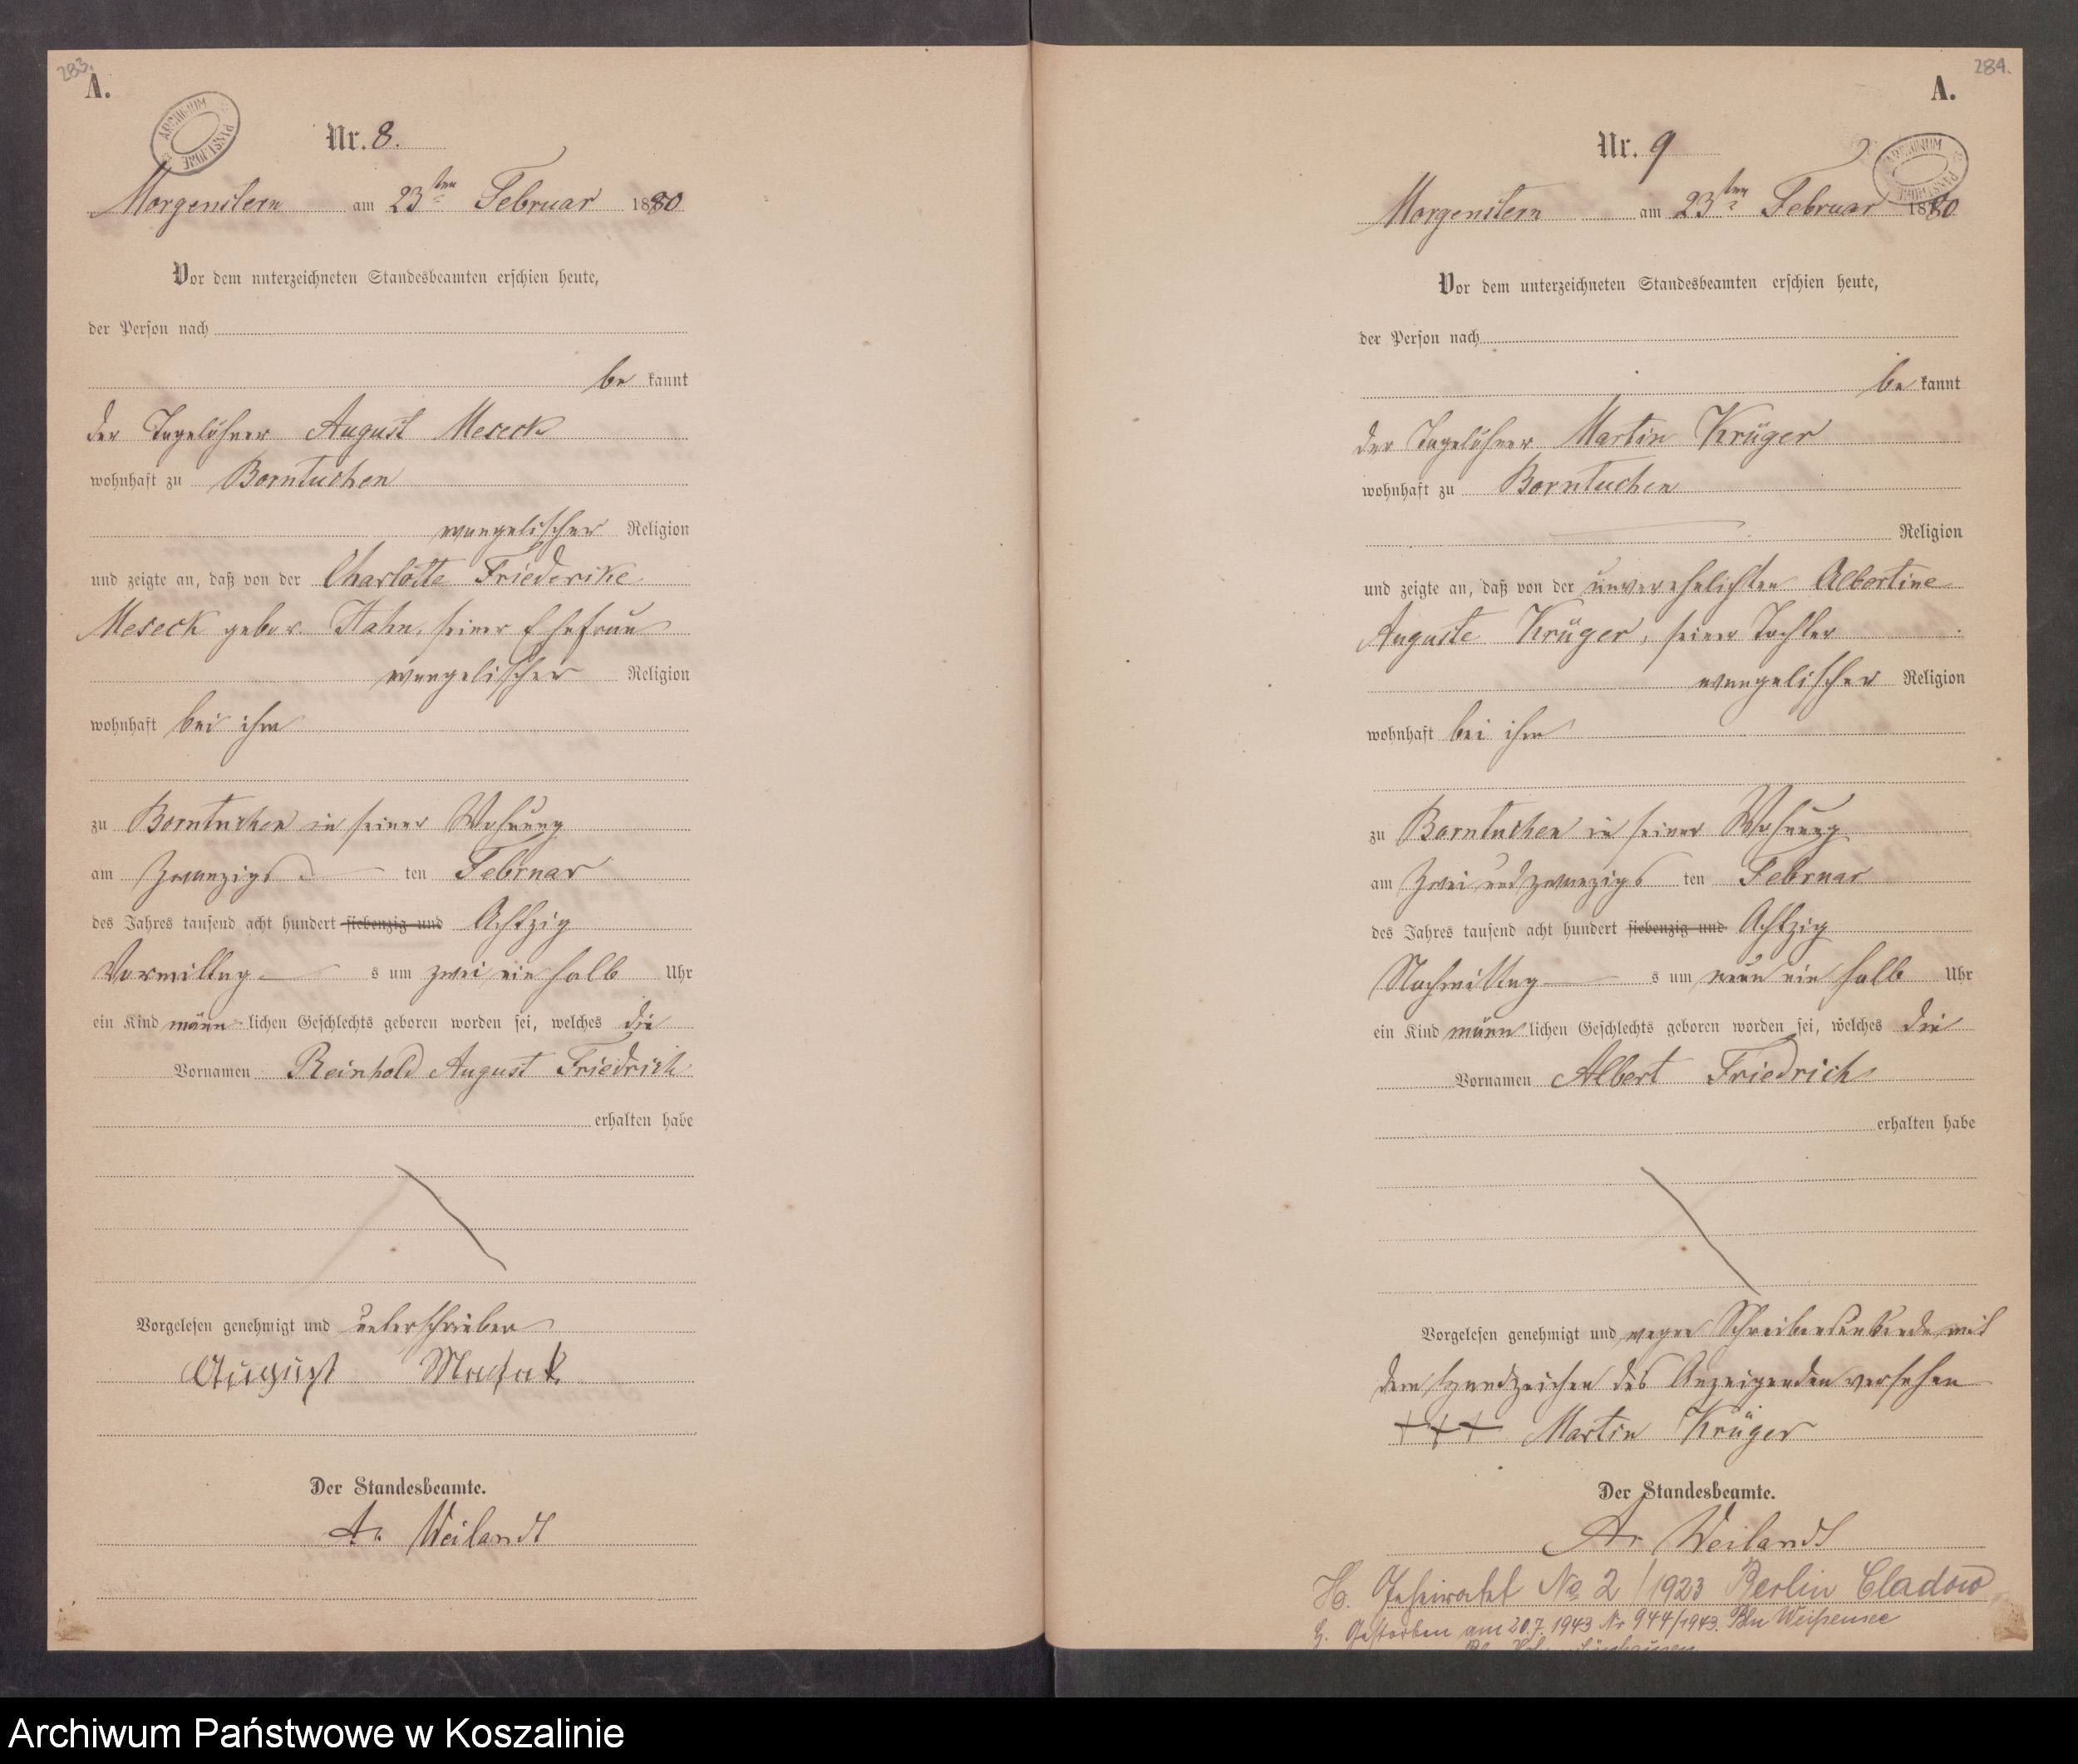 283.
A.
ARCHIWUM PAŃSTWOWE
Nr. 8.
Morgenstern am 23ten Februar 1880
Vor dem unterzeichneten Standesbeamten erschien heute,
der Person nach
be kannt
der Tagelöhner August Meseck
wohnhaft zu Borntuchen
evangelischer Religion
und zeigte an, daß von der Charlotte Friederike
Meseck gebor. Hahn, seiner Ehefrau
evangelischer Religion
wohnhaft bei ihm
zu Borntuchen in seiner Wohnung
am zwanzigs ten Februar
des Jahres tausend acht hundert siebenzig und Achtzig
Vormittag s um zwei ein halb Uhr
ein Kind männ lichen Geschlechts geboren worden sei, welches die
Vornamen Reinhold August Friedrich
erhalten habe
Vorgelesen genehmigt und unterschrieben
August
Der Standesbeamte.
A. Weilandt
284.
A.
ARCHIWUM PAŃSTWOWE
Nr. 9
Morgenstern am 23ten Februar 1880
Vor dem unterzeichneten Standesbeamten erschien heute,
der Person nach
be kannt
der Tagelöhner Martin Krüger
wohnhaft zu Borntuchen
Religion
und zeigte an, daß von der unverehelichten Albertine
Auguste Krüger, seiner Tochter
evangelischer Religion
wohnhaft bei ihm
zu Borntuchen in seiner Wohnung
am zwei und zwanzigs ten Februar
des Jahres tausend acht hundert siebenzig und Achtzig
Nachmittag s um neun ein halb Uhr
ein Kind männ lichen Geschlechts geboren worden sei, welches die
Vornamen Albert Friedrich
erhalten habe
Vorgelesen genehmigt und wegen Schreibensunkunde mit
dem Handzeichen des Anzeigenden versehen
+++ Martin Krüger
Der Standesbeamte.
A. Weilandt
H. Geheiratet No 2/1923 Berlin Cladow
G. Gestorben am 20.7.1943 Nr 944/1943. Bln Weißensee
Archiwum Państwowe w Koszalinie